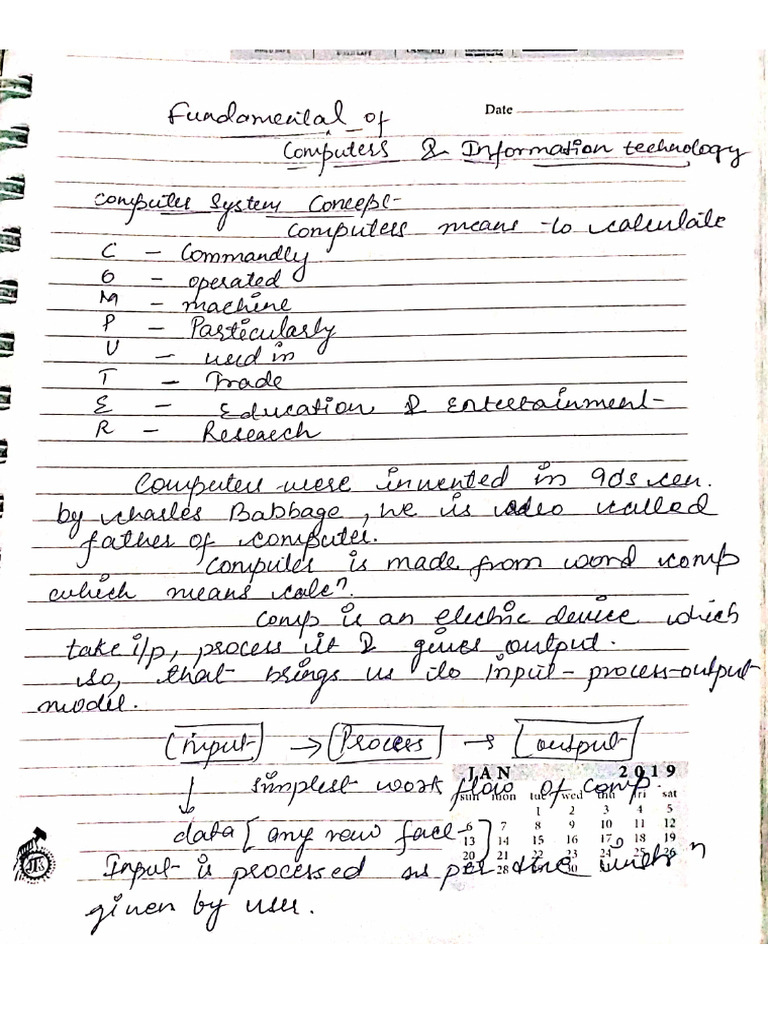 Fundamental of
Date
Computers & Information technology
Computer System Concept-
Computers means to calculate
C - Commandly
O - operated
M - machine
P - Particularly
U - used in
T - Trade
E - Education & Entertainment
R - Research
Computer were invented in 90's cen.
by charles Babbage, he is also called
father of computer.
Computer is made from word comp
which means calc?
Comp is an electric device which
take i/p, process it & gives output.
so, that brings us to input-process-output
model.
[input] → [Process] → [output]
simplest work flow of comp.
JAN 2019
sun mon tue wed thu fri sat
1 2 3 4 5
data [any raw face]
6 7 8 9 10 11 12
13 14 15 16 17 18 19
20 21 22 23 24 25 26
Input is processed as per the
28 29 30
given by user.
JK